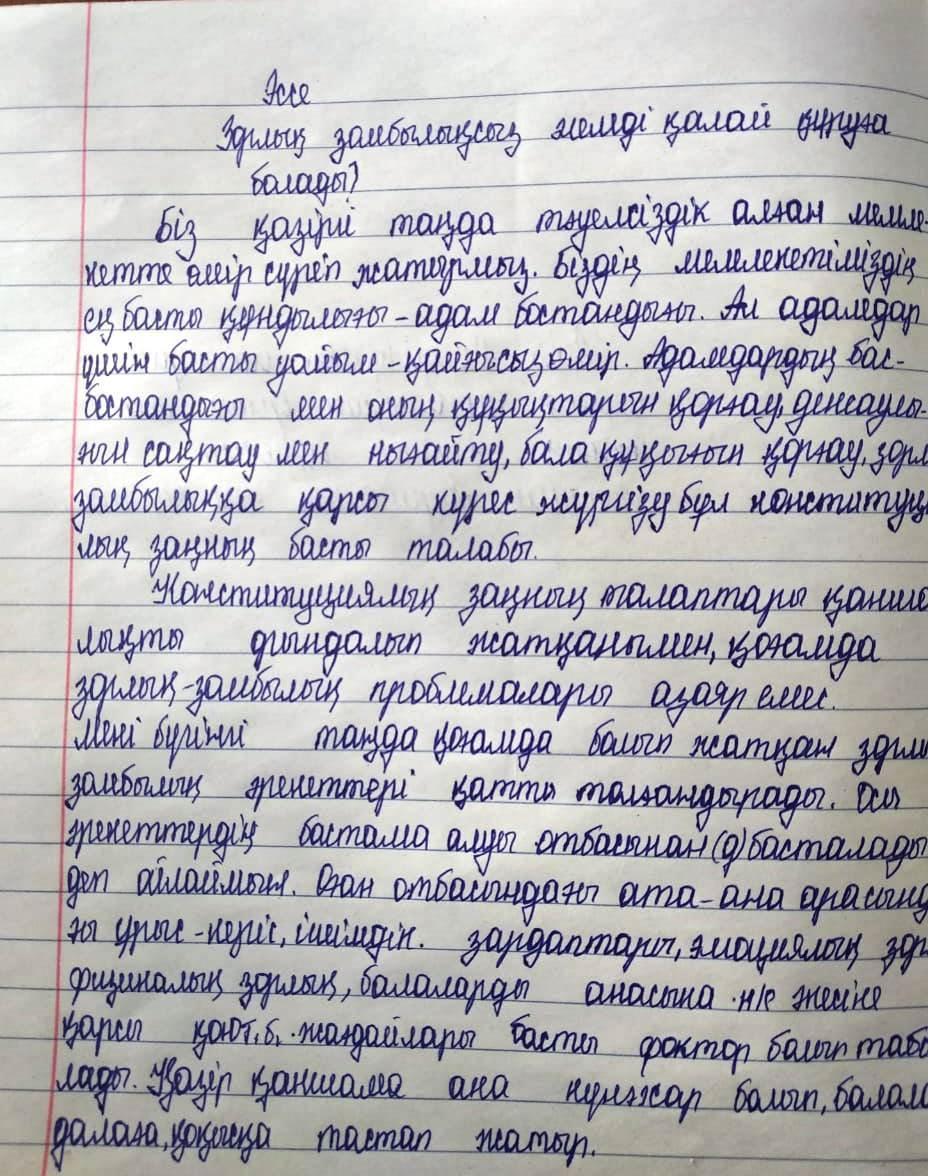 Эссе
Зорлық замбылықсыз әлемді қалай құруға
болады?
Біз қазіргі таңда тәуелсіздік алған мемле-
кетте өмір сүріп жатырмыз. Біздің мемлекетіміздің
ең басты құндылығы - адам бостандығы. Ал адамдар
үшін басты уайым - қайғысыз өмір. Адамдардың бас-
бостандығы мен оның құқықтарын қорғау, денсаулы-
ғын сақтау мен нығайту, бала құқығын қорғау, зорл
замбылыққа қарсы күрес жүргізу бұл конституция
лық заңның басты талабы.
Конституциялық заңның талаптары қанша
лықты орындалып жатқанымен, қоғамда
зорлық-замбылық проблемалары азаяр емес.
Мені бүгінгі таңда қоғамда болып жатқан зорлы
замбылық әрекеттері қатты толғандырады. Осы
әрекеттердің бастама алуы отбасынан (д) басталады
деп ойлаймын. Оған отбасындағы ата-ана арасынд
ғы ұрыс-керіс, ішімдік. зардаптары, эмоциялық зор
физикалық зорлық, балаларды анасына н/е әкесіне
қарсы қою т.б. жағдайлары басты фактор болып таб
лады. Қазір қаншама ана күнәжар болып, балам
далаға, қоқысқа тастап жатыр.